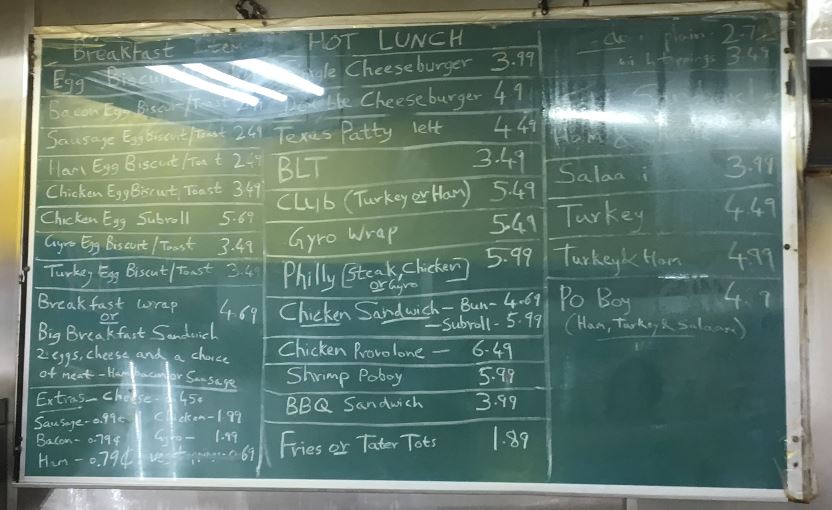 Breakfast Item
Egg Biscuit
Bacon Egg Biscuit/Toast
Sausage Egg Biscuit/Toast 2.49
Ham Egg Biscuit/Toast 2.49
Chicken Egg Biscuit, Toast 3.49
Chicken Egg Subroll 5.69
Gyro Egg Biscuit/Toast 3.49
Turkey Egg Biscut/Toast 3.49
Breakfast wrap 4.69
or
Big Breakfast Sandwich
2 eggs, cheese and a choice
of meat - Ham bacon or Sausage
Extras - Cheese - 0.45¢
Sausage - 0.99¢ Chicken - 1.99
Bacon - 0.79¢ Gyro - 1.99
Ham - 0.79¢ 0.69
HOT LUNCH
Cheeseburger 3.99
Double Cheeseburger 4.9
Texas Patty Melt 4.49
BLT 3.49
CLUb (Turkey or Ham) 5.49
Gyro Wrap 5.49
Philly [Steak, Chicken] 5.99
or Gyro
Chicken Sandwich - Bun - 4.69
- Subroll - 5.99
Chicken Provolone - 6.49
Shrimp Poboy 5.99
BBQ Sandwich 3.99
Fries or Tater Tots 1.89
plain - 2.79
toppings 3.49
Ham
Salaa i 3.99
Turkey 4.49
Turkey & Ham 4.99
Po Boy 4. 9
(Ham, Turkey & Salaam)